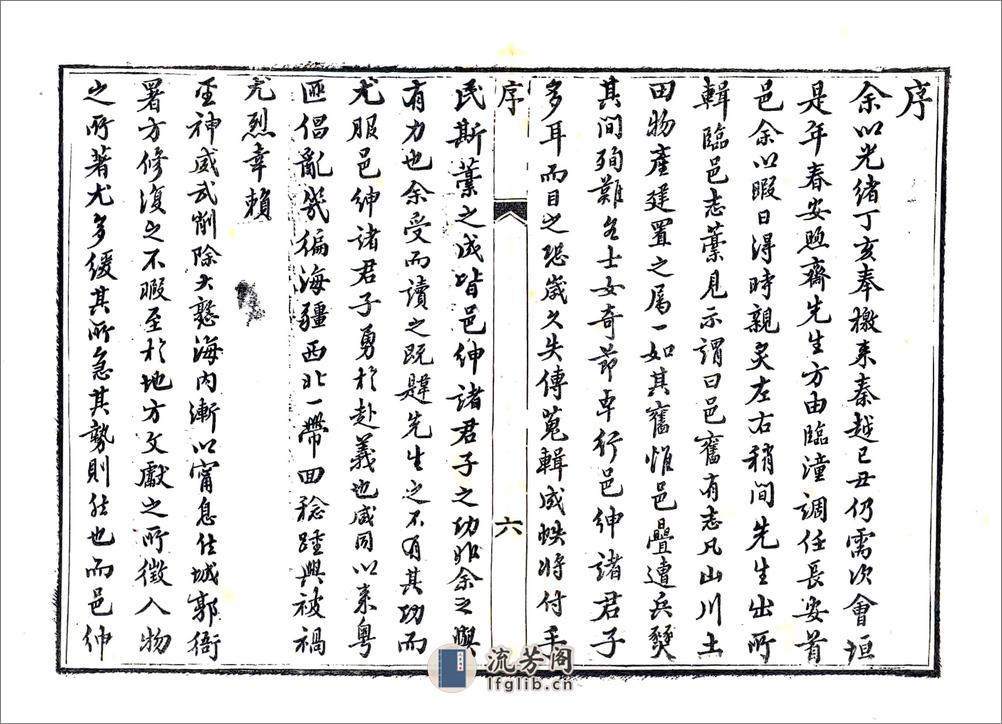 序
余以光緒丁亥奉檄來秦越己丑仍需次會垣
是年春安煦齋先生方由臨潼調任長安首
邑余以暇日得時親炙左右稍間先生出所
輯臨邑志藁見示謂曰邑舊有志凡山川土
田物產建置之屬一如其舊惟邑疊遭兵燹
其間殉難各士女奇節卓行邑紳諸君子
多耳而目之恐歲久失傳蒐輯成帙將付手
序
六
民斯藁之成皆邑紳諸君子之功非余之與
有力也余受而讀之既韙先生之不有其功而
尤服邑紳諸君子勇於赴義也咸同以來粵
匪倡亂幾徧海疆西北一帶回稔踵興被禍
尤烈幸賴
聖神威武削除大憝海內漸以甯息住城郭衙
署方修復之不暇至於地方文獻之所徵入物
之所著尤多緩其所急其勢則然也而邑紳
流芳閣
lfglib.cn